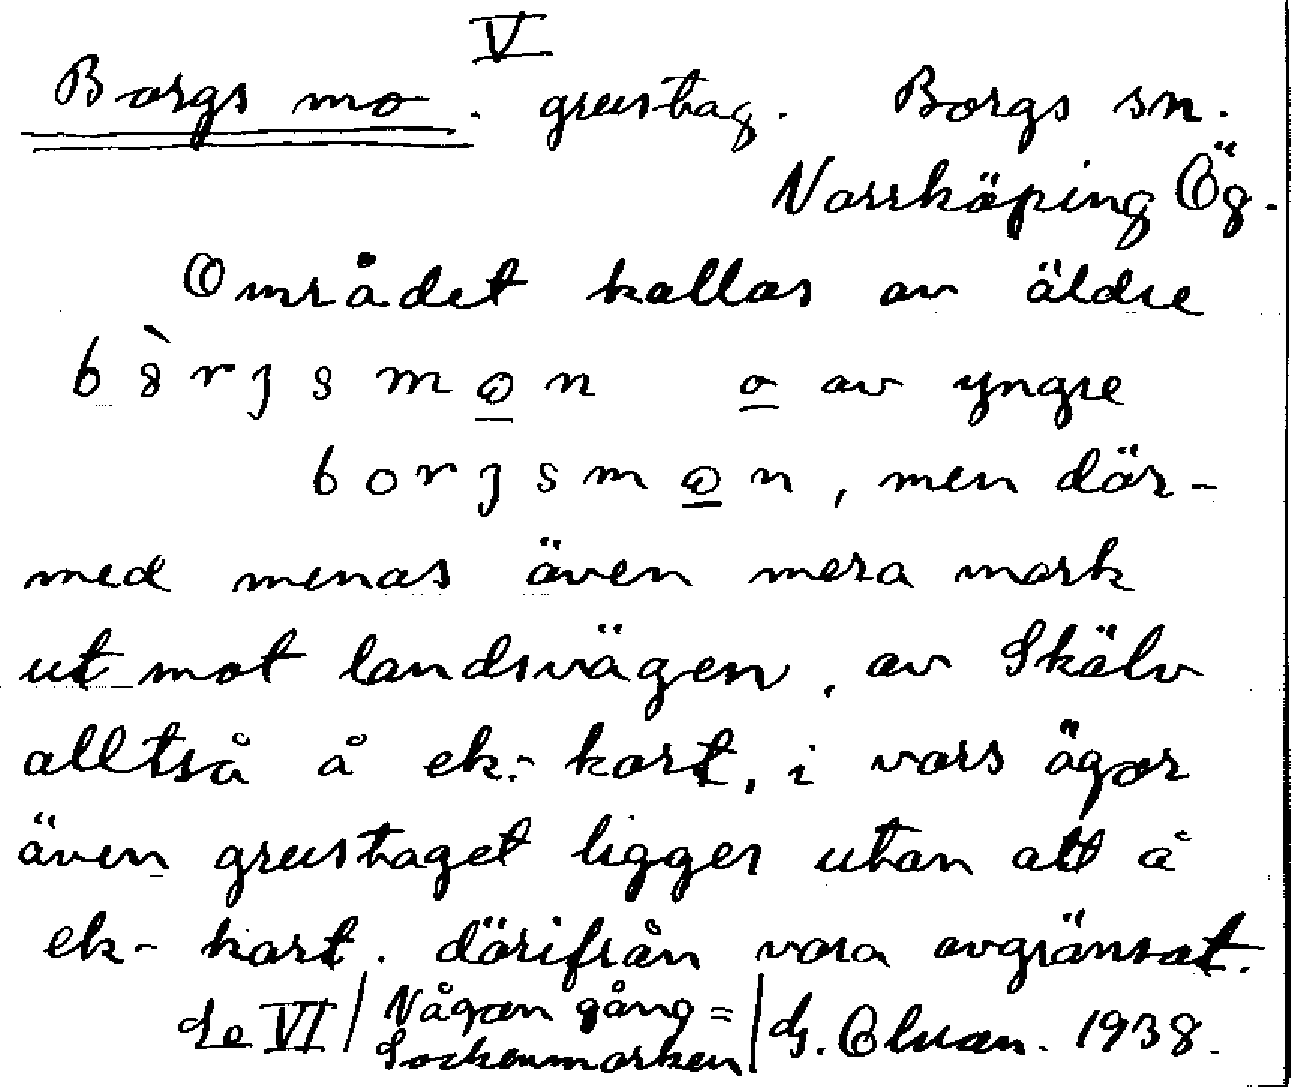 V
Borgs mo. grustag. Borgs sn.
Norrköping Ög.
Området kallas av äldre
o av yngre
borjsmon, men där-
med menas även mera mark
ut mot landsvägen, av Skälv
alltså å ek.- kart, i vars ägor
även grustaget ligger utan att å
ek- kart. därifrån vara avgränsat.
Se VI / Någon gång =
Sockenmarken / 1938.